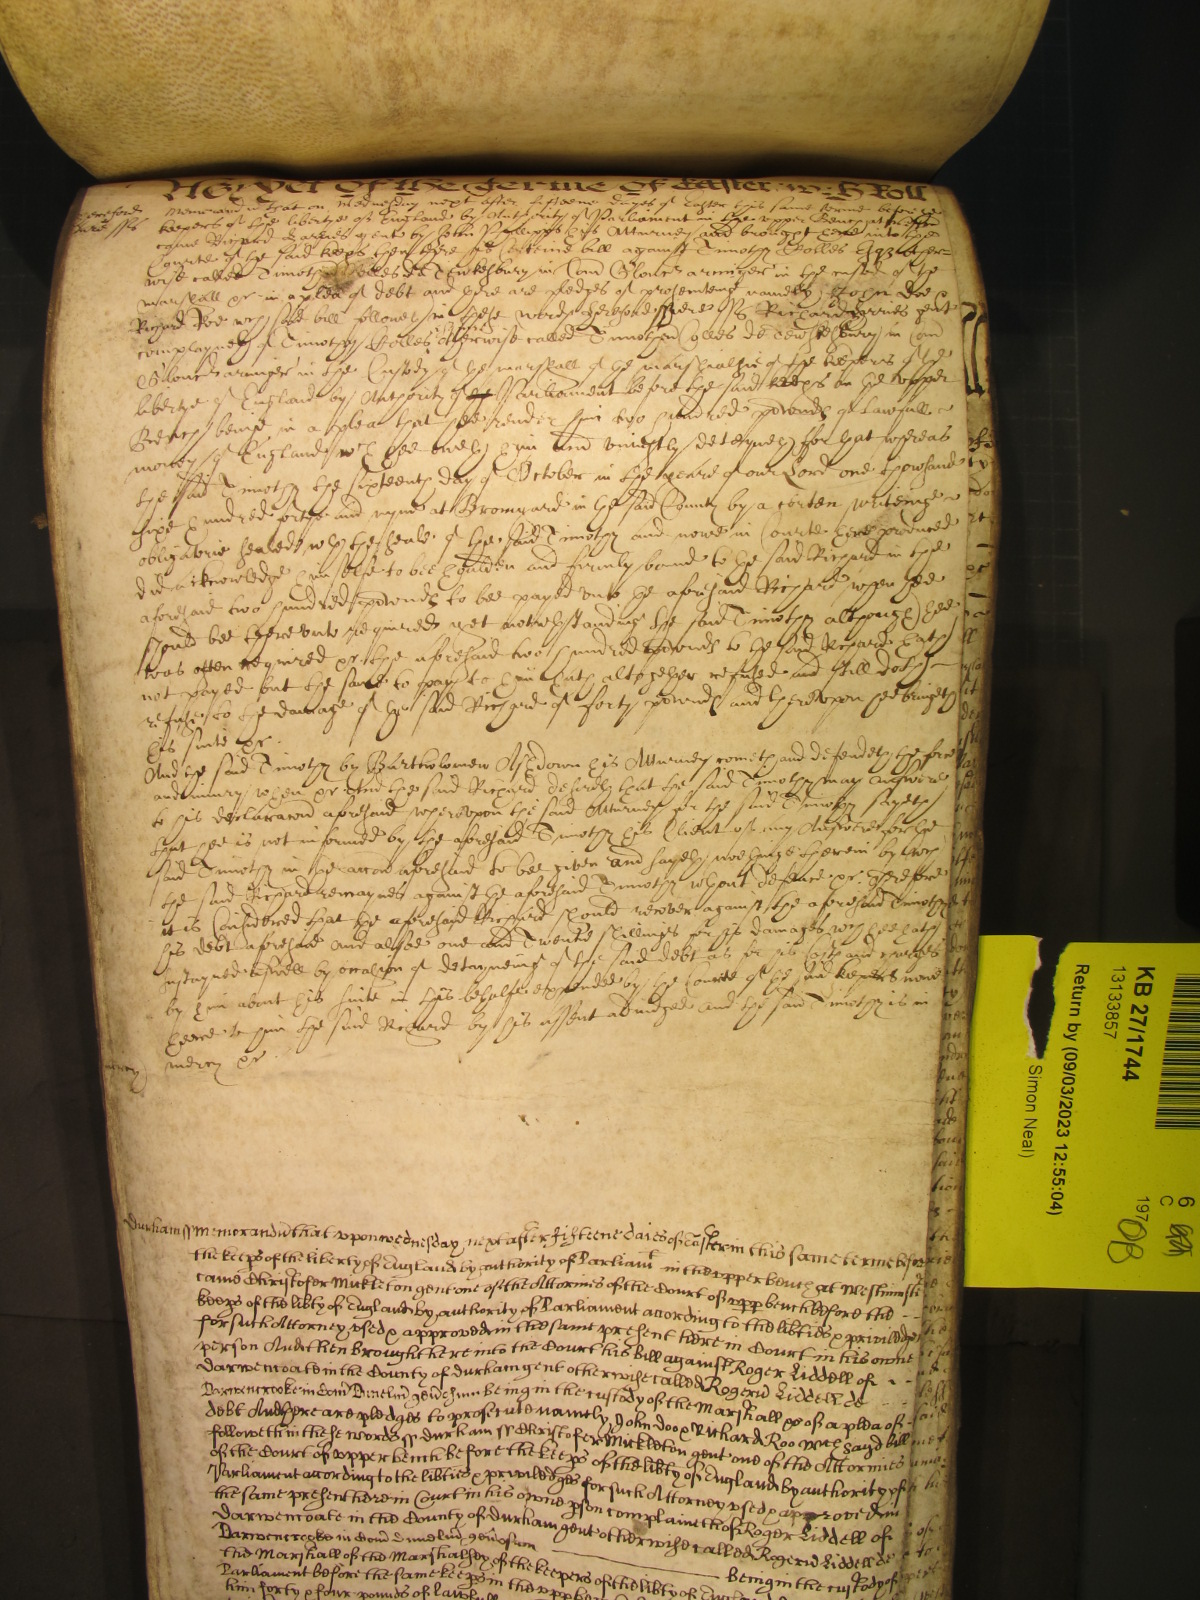 As yet of the Terme of Easter w: H Roll
Hereford shire ss Memorand that on Wednesday next after fifteene dayes of Easter this same terme before the
keepers of the libertye of England by Authority of Parliament in the upper Bench at Westm
came Richard Carries gent by John Phillipps his Attorney and brought here into the
Courte of the said keeps then there his certeine bill against Timothy Colles Esqr other
wise called Timothy Colles de Tewkesbury in Com Glouc armiger in the custod of the
marshall &c in a plea of debt and there are pledges of prosecuteing namely John Doe &
Richard Roe wch said bill followes in these words Hereford shire ss Richard Carries gent
complayneth of Timothy Colles otherwise called Timothy Colles de Tewkesbury in Com
Glouc armiger in the Custody of the marshall of the marshalsie of the keepers of the
libertye of England by Authority of Parliament before the said keeps in the upper
Bench being in a plea that hee render him two hundred pownds of lawfull
money of England wch hee oweth him and uniustly deteyneth for that whereas
the said Timothy the sixteenth day of October in the yeare of our Lord one thowsand
sixe hundred fortie and nyne at Bromyard in the said County by a certen writeinge
obligatorie sealed wth the seale of the said Timothy and nowe in Courte here produced
did acknowledge himselfe to bee houlden and firmly bound to the said Richard in the
aforesaid two hundred pownds to bee payed unto the aforesaid Richard when hee
should bee thereunto required yet notwthstanding the said Timothy although hee
was often required &c the aforesaid two hundred pownds to the said Richard hath
not payed but the same to pay to him hath altogether refused and still doth
refuse to the damage of the said Richard of forty pownds and thereupon hee bringeth
his suite &c
And the said Timothy by Bartholomew Ashdown his Attorney cometh and defendeth the force
and iniury when &c And the said Richard desireth that the said Timothy may answere
to his declaracon aforesaid whereupon the said Attorney for the said Timothy sayeth
that hee is not informed by the aforesaid Timothy his Client of any Answere for the
said Timothy in the accon aforesaid to bee given and sayeth nothinge therein by wch
the said Richard remaynes against the aforesaid Timothy wthout defence &c Therefore
it is Considered that the aforesaid Richard should recover against the aforesaid Timothy
his debt aforesaid and alsoe one and Twentie shillinges for his damages wch hee hath
sustayned aswell by occasion of deteyneing of the said debt as for his costs and charges
by him about his suite in this behalfe expended by the Courte of the said keepers nowe
heere to him the said Richard by his assent adiudged and the said Timothy is in
mercy mercy &c
Durham ss Memorandu that upon wednesday next after fifteene daies of Easter in this same terme before
the keeps of the liberty of England by authority of Parliamt in the upper bench at Westminster
came Christofer Mickleton gent one of the Attornies of the Court of upp bench before the
keeps of the libty of England by authority of Parliament according to the libties & priviledges
for such Attorney used & approved in the same present here in Court in his owne
person And then brought here into the Court his bill against Roger Liddell of
Darwencoate in the County of Durham gent otherwise called Rogeru Liddell de
Darwencrooke in Com Dunelm generosum being in the custody of the Marshall &c of a plea of
debt And there are pledges to prosecute namely John Doo & Richard Roo wch sayd bill
followeth in these words ss Durham ss Christofer Mickleton gent one of the Attornies
of the Court of upper bench before the keeps of the libty of England by authority of
Parliament according to the libties & priviledges for such Attorney used & approved in
the same present here in Court in his owne pson complaineth of Roger Liddell of
Darwencoate in the County of Durham gent otherwise called Rogeru Liddell de
Darwencrooke in Com Dunelm generosum being in the custody of
the Marshall of the Marshalsey of the keepers of the libty of England
Parliament before the same keeps in the upp
him forty & four pounds of lawfull
KB 27/1744
13133857
Return by (09/03/2023 12:55:04)
Simon Neal)
6
C
197